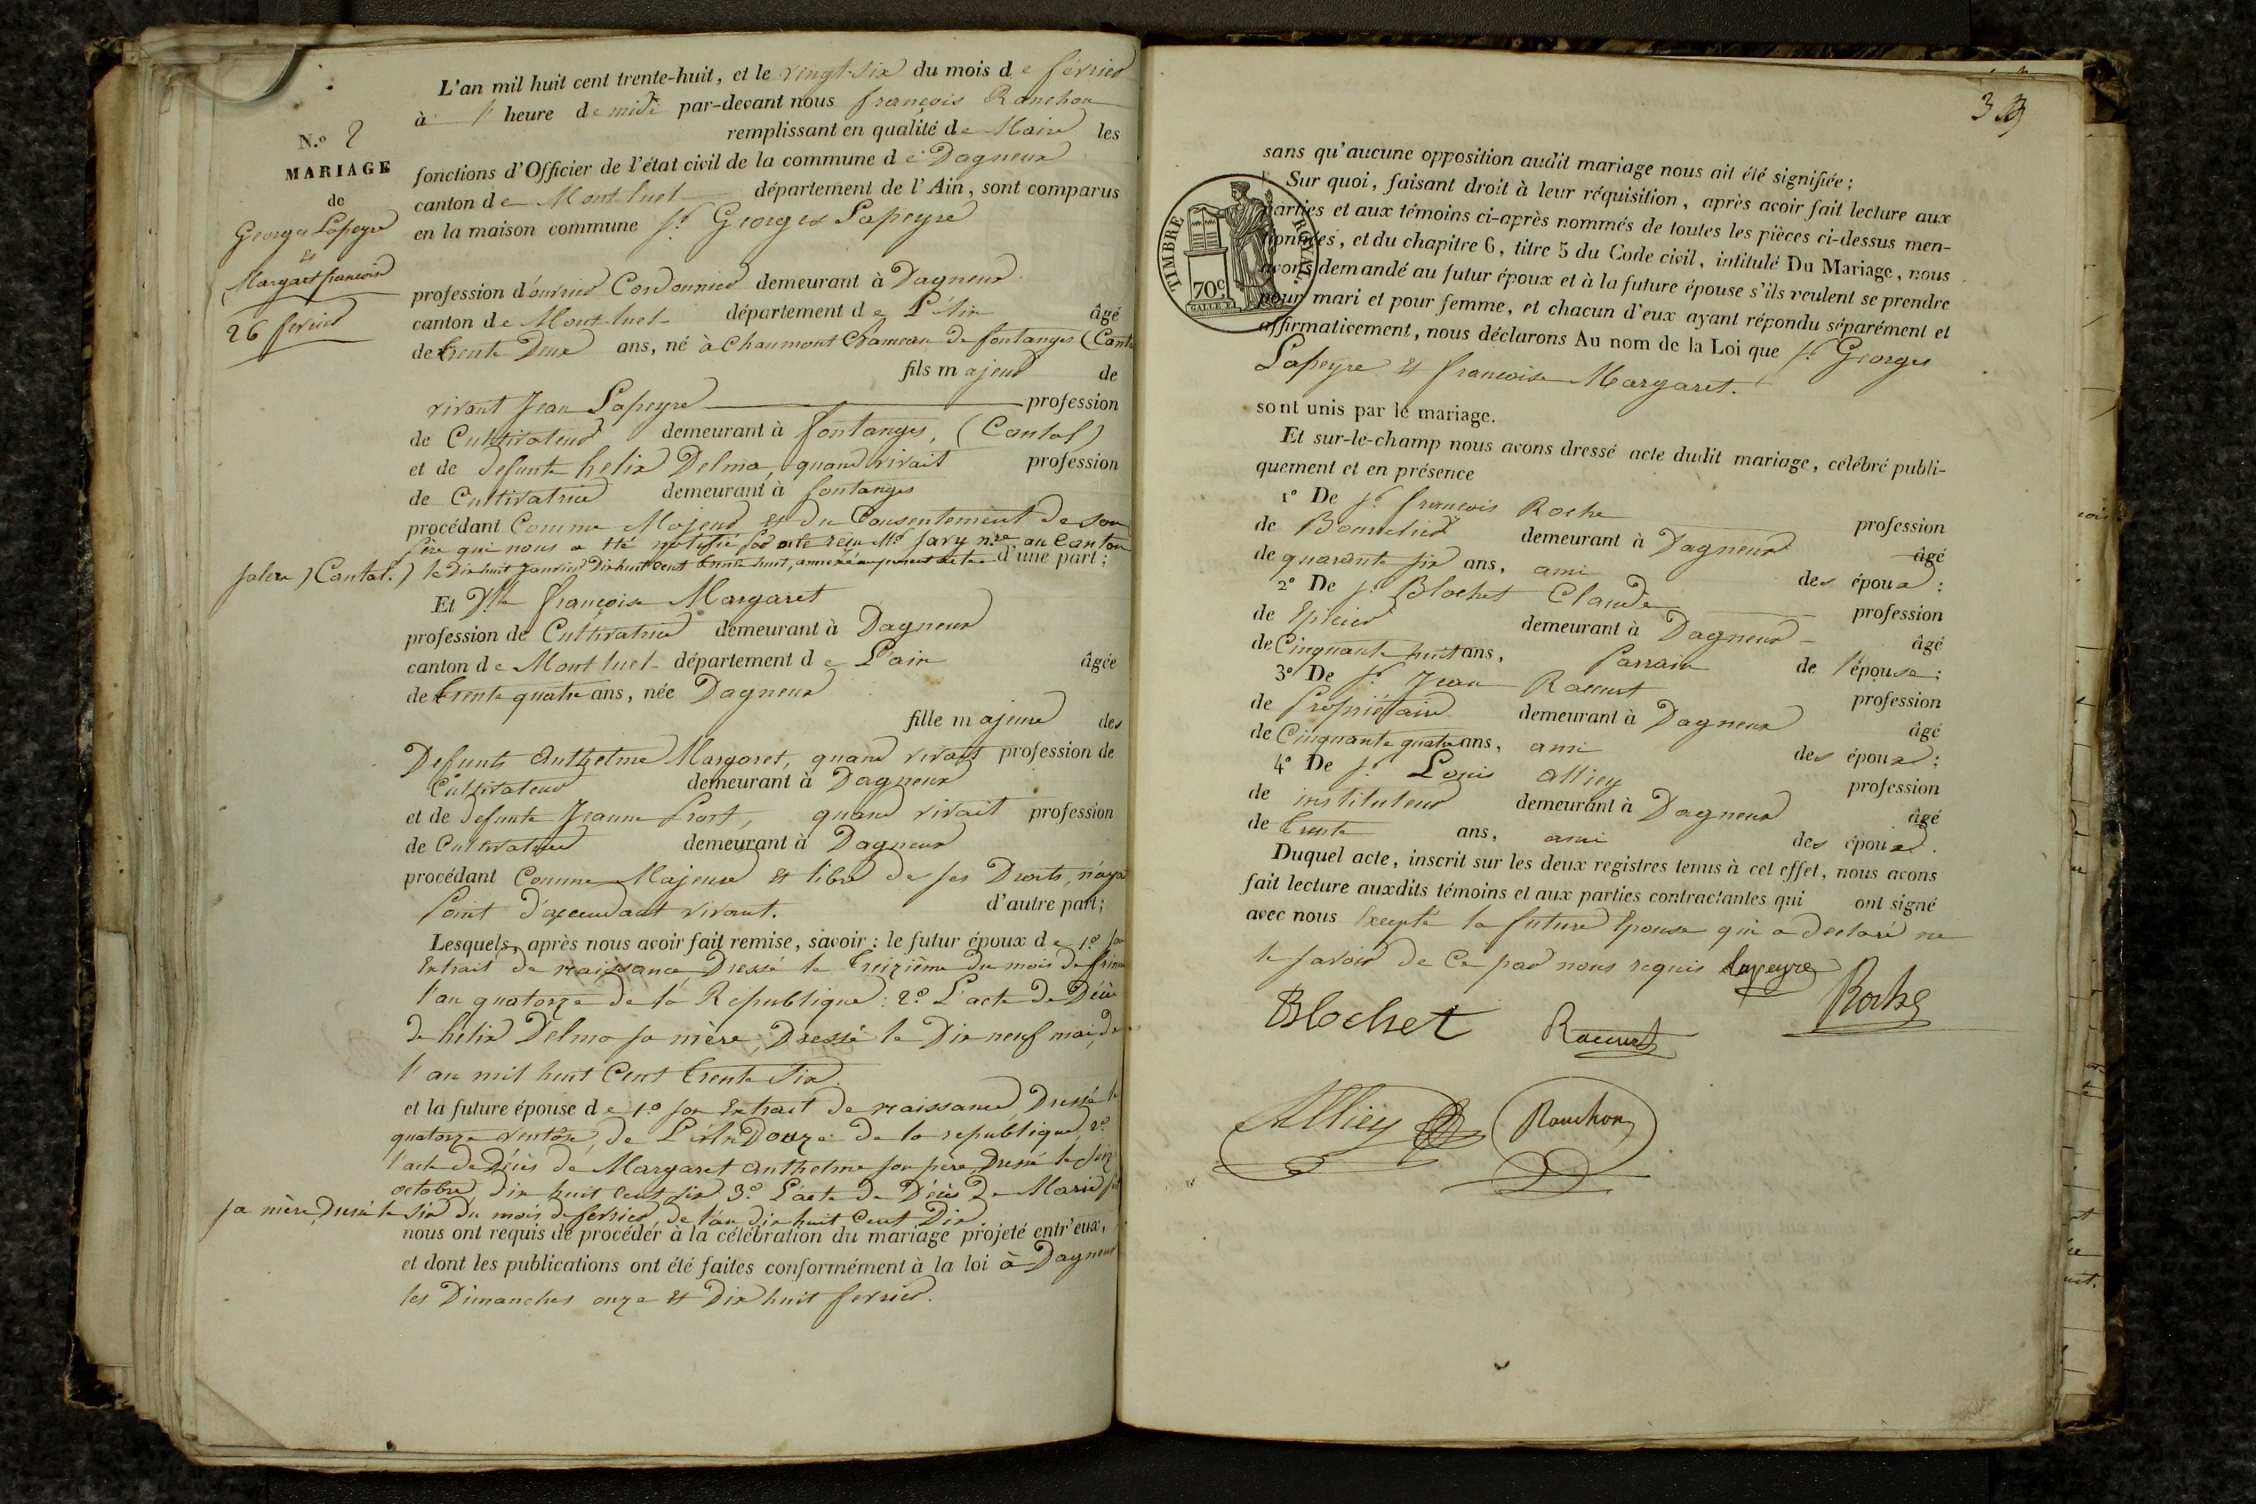 L'an mil huit cent trente-huit, et le vingt-six du mois de février
à l' heure de midi par-devant nous françois Ranchon
remplissant en qualité de Maire les
N.o 2
MARIAGE
de
Georges Lapeyre
et
Margaret francoise
26 fevrier
fonctions d'Officier de l'état civil de la commune de Dagneux
canton de Montluel département de l'Ain, sont comparus
en la maison commune sr. Georges Lapeyre
profession d'ouvrier Cordonnier demeurant à Dagneux
canton de Montluel département de L'Ain âgé
de trente Deux ans, né à Chaumont hameau de fontanges (Canta
fils majeur de
vivant Jean Lapeyre profession
de Cultivateur demeurant à fontanges, (Cantal)
et de defunte helix Delma, quand vivait profession
de Cultivatrice demeurant à fontanges
procédant Comme Majeur et du Consentement de son
père qui nous a été notifié par acte reçu Me. Savy nre au Canton
salers (Cantal.) le Dix huit Janvier Dix huit Cent trente huit, annexé au présent acte d'une part;
Et Dlle françoise Margaret
profession de Cultivatrice demeurant à Dagneux
canton de Montluel département de L'ain âgée
de trente quatre ans, née Dagneux
fille majeure des
Defunts Anthelme Margaret, quand vivait profession de
Cultivateur demeurant à Dagneux
et de defunte Jeanne Prost, quand vivait profession
de Cultivatrice demeurant à Dagneux
procédant Comme Majeure et libre de ses Droits, n'aya
Point d'ascendant vivant. d'autre part;
Lesquels, après nous avoir fait remise, savoir: le futur époux de 1.o son
Extrait de naissance Dressé le treizième du mois de frima
l'an quatorze de la République: 2.o L'acte de Décès
de hélix Delma sa mère, Dressé le Dix neuf mai, de
l'an mil huit Cent trente Six.
et la future épouse de 1.o son Extrait de naissance, Dressé le
quatorze ventôse, de L'an Douze de la republique, 2.o
l'acte de Décès de Margaret Anthelme son père Dressé le
octobre, dix huit Cent six 3.o L'acte de Décès de
sa mère, Dressé le Six du mois de fevrier de l'an dix huit Cent Dix.
nous ont requis de procéder à la célébration du mariage projeté entr'eux,
et dont les publications ont été faites conformément à la loi à Dagneux
les Dimanches onze et Dix huit fevrier.
3
TIMBRE ROYAL.
70c
sans qu'aucune opposition audit mariage nous ait été signifiée;
Sur quoi, faisant droit à leur réquisition, après avoir fait lecture aux
parties et aux témoins ci-après nommés de toutes les pièces ci-dessus men-
tionnées, et du chapitre 6, titre 5 du Code civil, intitulé Du Mariage, nous
avons demandé au futur époux et à la future épouse s'ils veulent se prendre
pour mari et pour femme, et chacun d'eux ayant répondu séparément et
affirmativement, nous déclarons Au nom de la Loi que sr. Georges
Lapeyre et francoise Margaret.
sont unis par le mariage.
Et sur-le-champ nous avons dressé acte dudit mariage, célébré publi-
quement et en présence
1o De sr. françois Roche profession
de Bourrelier demeurant à Dagneux âgé
de quarante six ans, ami des époux:
2o De sr. Blochet Claude profession
de Epicier demeurant à Dagneux âgé
de Cinquante huit ans, Parrain de l'épouse:
3o De sr. Jean Racurt profession
de Propriétaire demeurant à Dagneux âgé
de Cinquante quatre ans, ami des époux:
4o De sr. Louis Alliey profession
de instituteur demeurant à Dagneux âgé
de trente ans, ami des époux.
Duquel acte, inscrit sur les deux registres tenus à cet effet, nous avons
fait lecture auxdits témoins et aux parties contractantes qui ont signé
avec nous Excepté la future Epouse qui a declaré ne
le savoir de Ce par nous requis Lapeyre
Blochet Racurt Roche
Alliey Ranchon